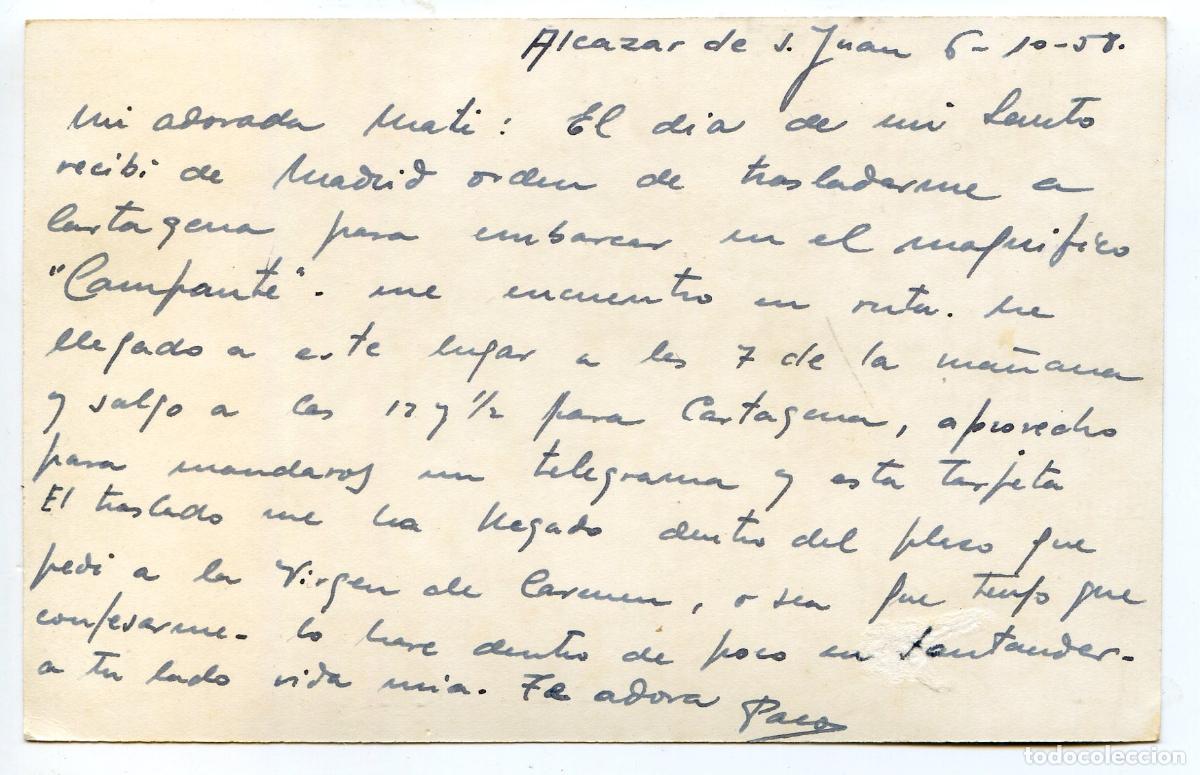 Alcazar de S. Juan 6-10-58.
Mi adorada Mati: El dia de mi Santo
recibi de Madrid orden de trasladarme a
Cartagena para embarcar en el magnifico
"Campante". me encuentro en ruta. He
llegado a este lugar a las 7 de la mañana
y salgo a las 12 y 1/2 para Cartagena, aprovecho
para mandaros un telegrama y esta tarjeta
El traslado me ha llegado dentro del plazo que
pedi a la Virgen de Carmen, o sea que tengo que
confesarme. lo hare dentro de poco en Santander.
a tu lado vida mia. Te adora Paco
todocoleccion